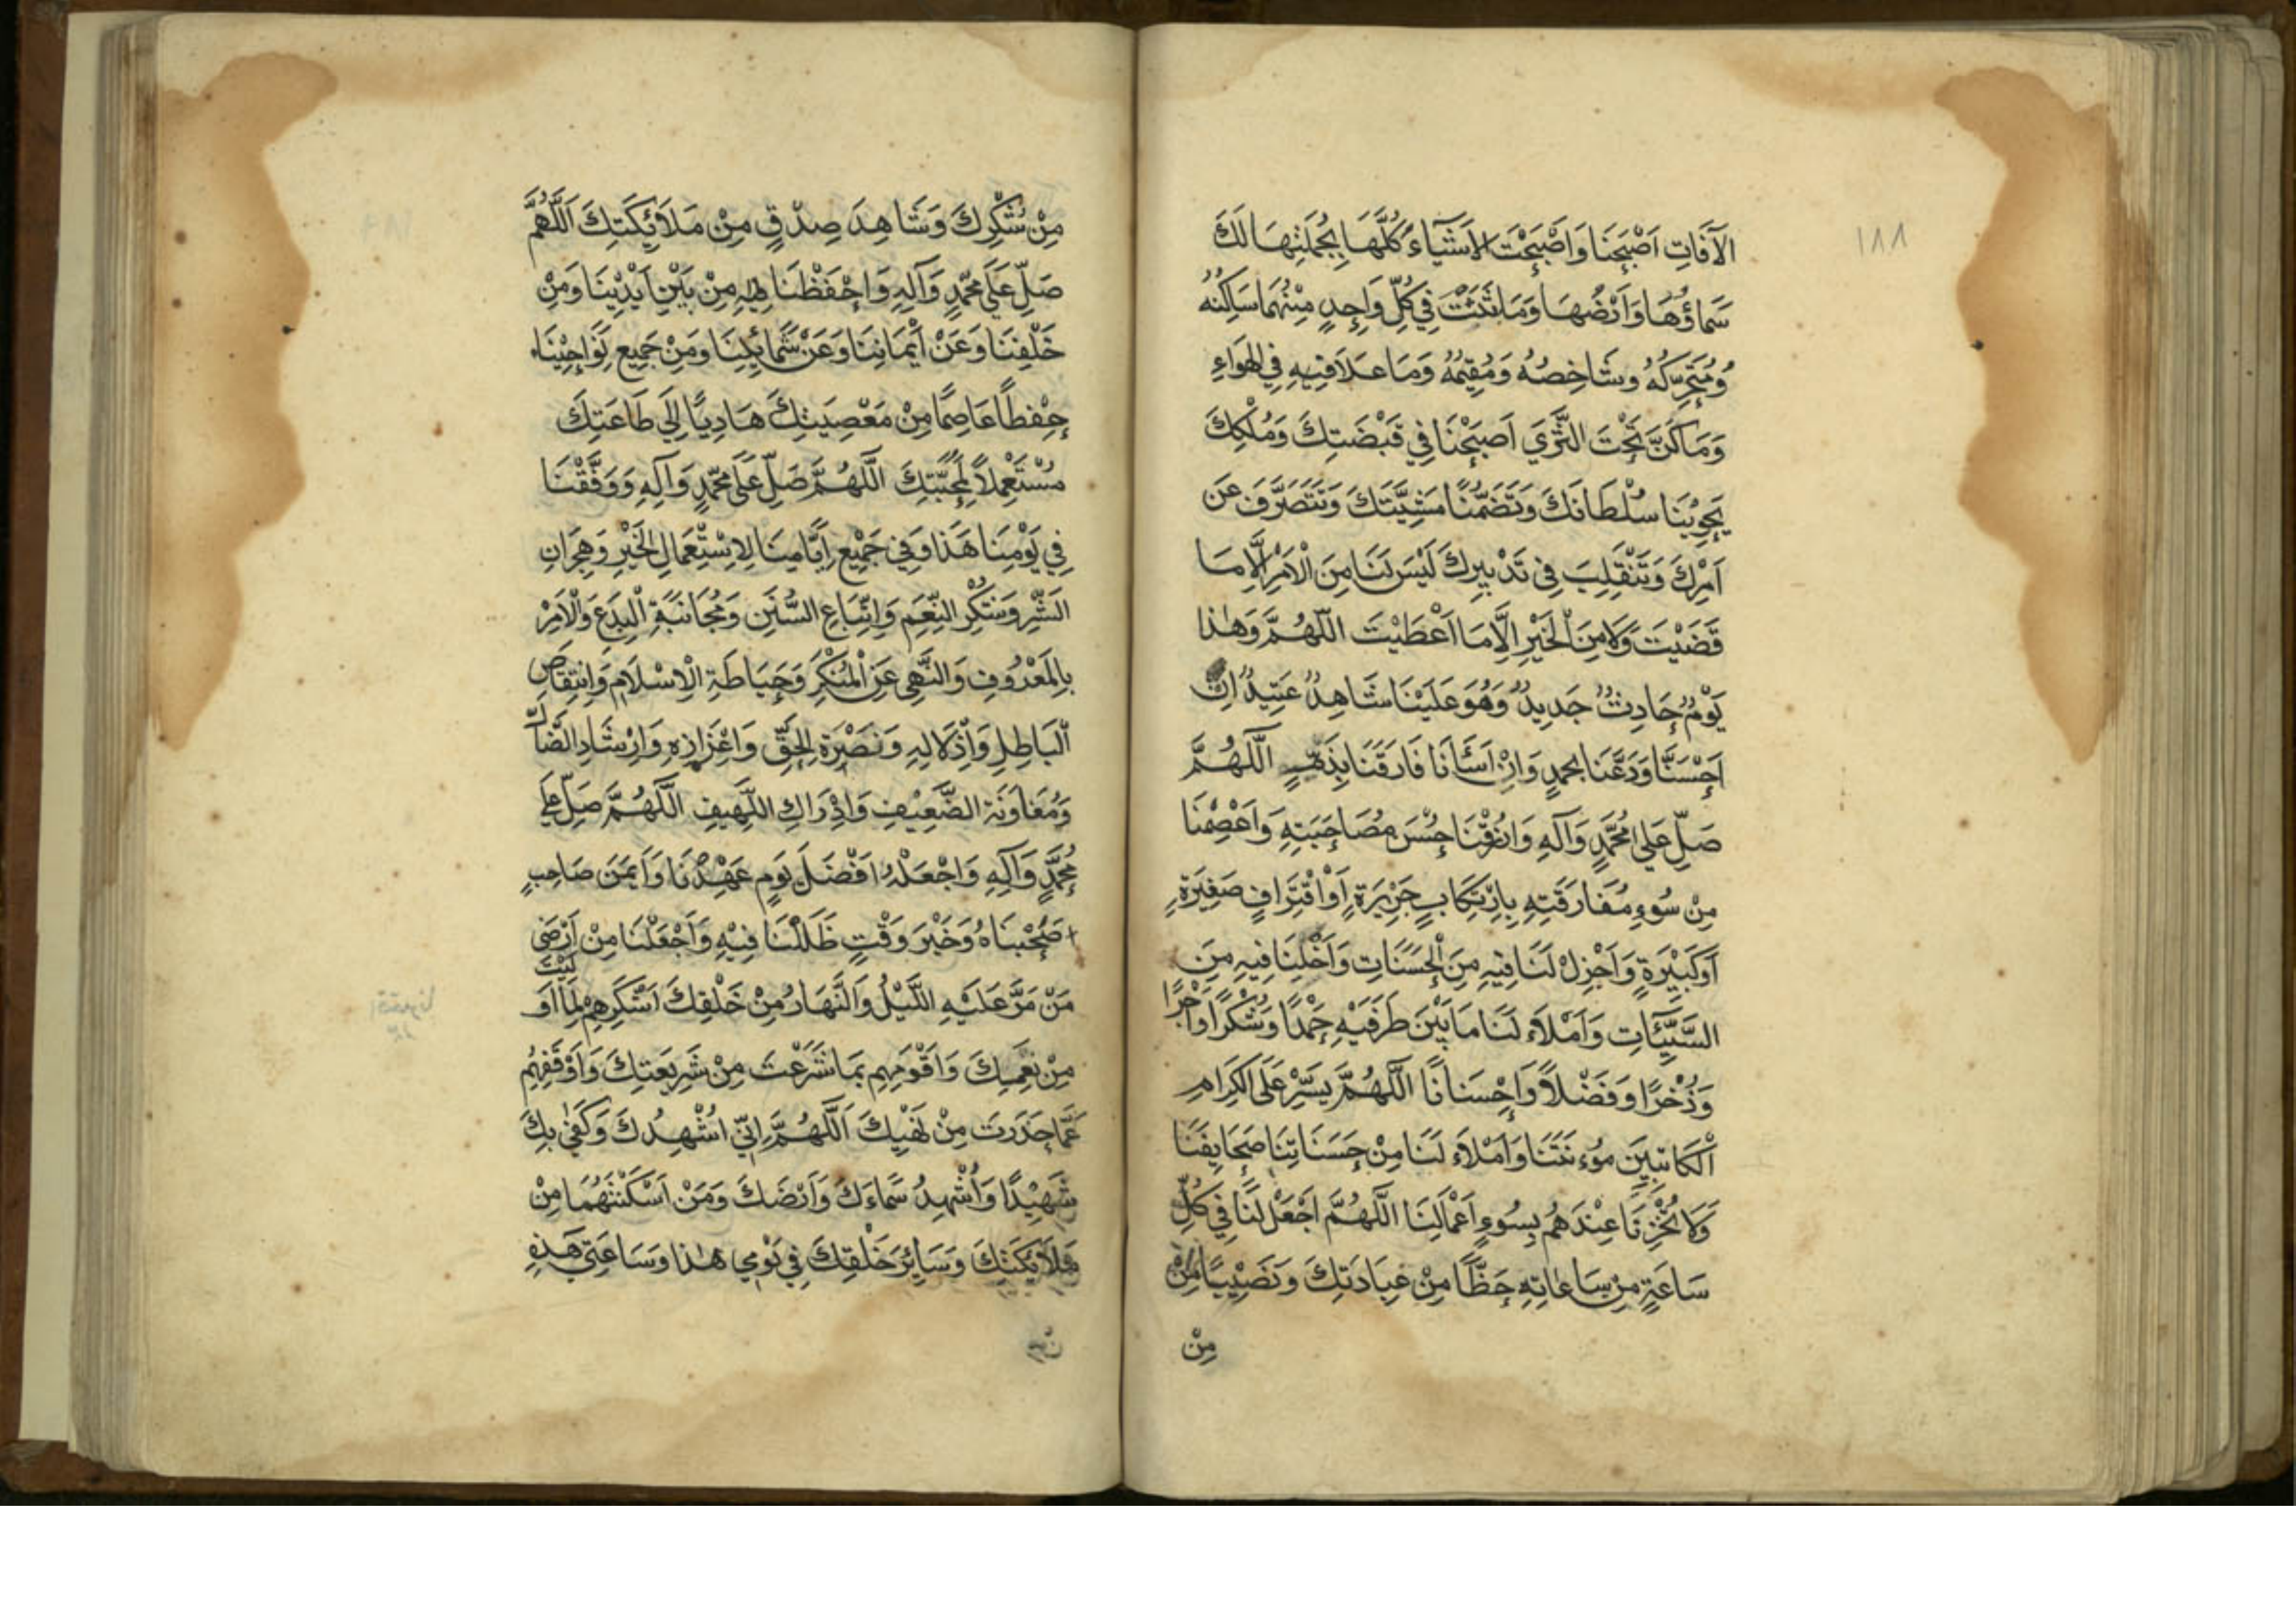 ١٨٨
الآفَاتِ اَصْبَحْنَا وَاَصْبَحَتِ الاَشْيَاءُ كُلُّهَا بِجُمْلَتِهَا لَكَ
سَمَاؤُهَا وَاَرْضُهَا وَمَا بَثَثْتَ فِي كُلِّ وَاحِدٍ مِنْهُمَا سَاكِنُهُ
وَمُتَحَرِّكُهُ وَشَاخِصُهُ وَمُقِيمُهُ وَمَا عَلَا فِيهِ فِي الهَوَاءِ
وَمَا كَنَّ تَحْتَ الثَّرَي اَصْبَحْنَا فِي قَبْضَتِكَ وَمُلْكِكَ
يَحْوِيْنَا سُلْطَانَكَ وَتَضَمُّنَا مَشِيَّتَكَ وَنَتَصَرَّفَ عَنَ
اَمْرِكَ وَنَنْقَلِبَ فِي تَدْبِيرِكَ لَيْسَ لَنَا مِنَ الْاَمْرِ اِلَّا مَا
قَضَيْتَ وَلَا مِنَ الْخَيْرِ اِلَّا مَا اَعْطَيْتَ اللّهُمَّ وَهٰذَا
يَوْمٌ حَادِثٌ جَدِيدٌ وَهُوَ عَلَيْنَا شَاهِدٌ عَتِيدٌ اِنْ
اَحْسَنَّا وَدَّعَنَا بحمدٍ وَاِنْ اَسَأْنَا فَارَقَنَا بِذَنْبٍ اَللّهُمَّ
صَلِّ عَلَي مُحَمَّدٍ وَآلِهِ وَارْزُقْنَا حُسْنَ مُصَاحَبَتِهِ وَاَعْصِمْنَا
مِنْ سُوءِ مُفَارَقَتِهِ بِارْتِكَابِ جَرِيْرَةٍ اَوْ اقْتِرَافِ صَغِيْرَةٍ
اَوْ كَبِيْرَةٍ وَاَجْزِلْ لَنَا فِيهِ مِنَ الْحَسَنَاتِ وَاَخْلِنَا فِيهِ مِنَ
السَّيِّئَاتِ وَاَمْلَاَء لَنَا مَا بَيْنَ طَرَفَيْهِ حَمْدًا وَشُكْرًا وَاَجْرًا
وَذُخْرًا وَفَضْلًا وَاِحْسَانًا اَللّهُمَّ يَسِّرْ عَلَى الكِرَامِ
اَلْكَاتِبِيْنَ مَوُءنَتَنَا وَاَمْلَاَء لَنَا مِنْ حَسَنَاتِنَا صَحَايِفَنَا
وَلَا تُخْزِنَا عِنْدَهُمْ بِسُوءِ اَعْمَالِنَا اَللّهُمَّ اَجْعَلْ لَنَا فِي كُلِّ
سَاعَةٍ مِنْ سَاعَاتِهِ حَظًّا مِنْ عِبَادَتِكَ وَنَصِيْبًا مِنْ
مِنْ
مِنْ شُكْرِكَ وَشَاهِدَ صِدْقٍ مِنْ مَلَائِكَتِكَ اَللَّهُمَّ
صَلِّ عَلَي مُحَمّدٍ وَآلِهِ وَاحْفَظْنَا فِيْهِ مِنْ بَيْنِ اَيْدِيْنَا وَمِنْ
خَلْفِنَا وَعَنْ اَيْمَانِنَا وَعَنْ شَمَائِلِنَا وَمِنْ جَمِيعِ نَوَاحِيْنَا
حِفْظًا عَاصِمًا مِنْ مَعْصِيَتِكَ هَادِيًا اِلَي طَاعَتِكَ
مُسْتَعْمِلاً لِمَحَبَّتِكَ اَللَّهُمَّ صَلِّ عَلَى مُحَمّدٍ وَآلِهِ وَوَفَّقْنَا
فِي يَوْمِنَا هَذَا وَفِي جَمِيْعِ اَيَّامِنَا لِاِسْتِعْمَالِ الْخَيْرِ وَهِجْرَانِ
الشَّرِّ وَشُكْرِ النِّعَمِ وَاِتِّبَاعِ السُّنَنِ وَمُجَانَبَةِ الْبِدَعِ وَالْاَمْرِ
بِالمَعْرُوفِ وَالنَّهْيِ عَنِ الْمُنْكَرِ وَحِيَاطَةِ الْاِسْلَامِ وَانْتِقَاصِ
الْبَاطِلِ وَاِذْلَالِهِ وَنَصْرَةِ الحَقِّ وَاعْزَازِهِ وَاِرْشَادِ الضَّآلِّ
وَمُعَاوَنَةِ الضَّعِيْفِ وَاِدْرَاكِ اللَّهِيفِ اَللَّهُمَّ صَلِّ عَلَي
مُحَمَّدٍ وَآلِهِ وَاجْعَلْهُ اَفْضَلَ يَوْمٍ عَهِدْنَا وَاَيْمَنَ صَاحِبٍ
صَحِبْنَاهُ وَخَيْرَ وَقْتٍ ظَلَلْنَا فِيْهِ وَاَجْعَلْنَا مِنْ اَرْضَي
مَنْ مَرَّ عَلَيْهِ اللَّيْلُ وَالنَّهَارُ مِنْ خَلْقِكَ اَشْكَرِهِمْ لِمَا اَوْلَيْتَ
مِنْ نِعَمِكَ وَاَقْوَمِهِمِ بَمَا شَرَعْتَ مِنْ شَرِيعَتِكَ وَاَوْقَفِهِمُ
عَمَّا حَذَرتَ مِنْ نَهْيِكَ اَللَّهُمَّ اِنِّي اُشْهِدُكَ وَكَفَى بِكَ
شَهِيْدًا وَاُشْهِدُ سَّمَاءَكَ وَاَرْضَكَ وَمَنْ اَسْكَنْتَهُمَا مِنْ
مَلَائِكَتِكَ وَسَايِرَ خَلْقِكَ فِي يَوْمِي هٰذَا وَسَاعَتِي هَذِهِ